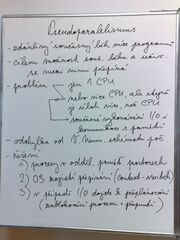 Pseudoparalelismus
- zdánlivý současný běh více programů
- cílem možnost souč. běhu a uživ. se mezi nimi přepíná
- problém
jen 1 CPU
nebo více CPU, ale zbývá
je úloh více, než CPU
současné vykonávání I/O i
komunikace s pamětí
- odchylka od V. Neum. schématu poč.
řešení
1) procesy v odděl. paměť. prostorech
2) OS zajistí přepínání (context-switch)
3) v případě I/O dojde k přeplánování
(zablokování procesu + přepnutí)